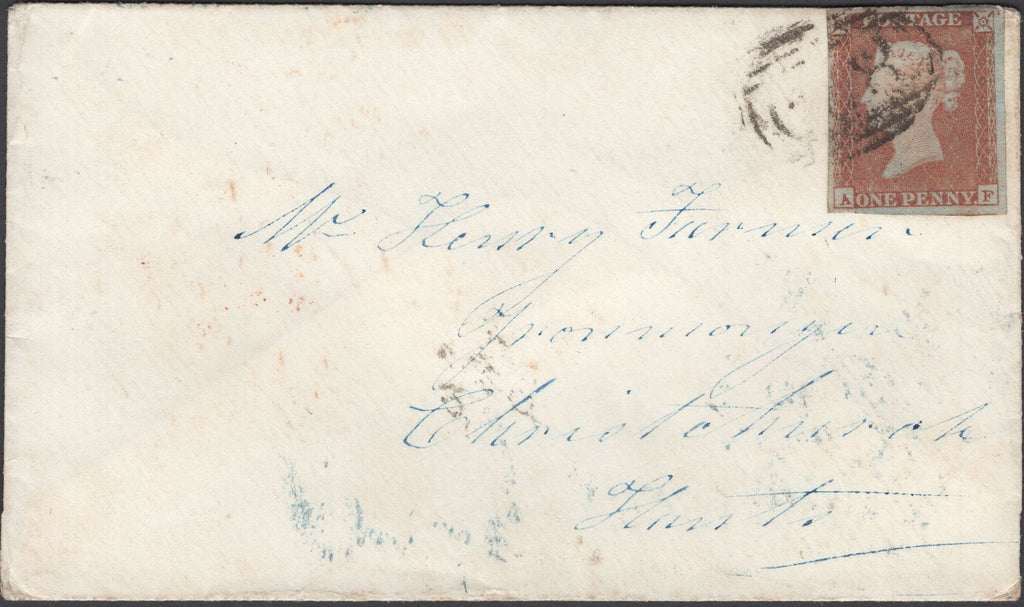 POSTAGE
ONE PENNY
A F
Mr Henry
Ironmonger
Christchurch
Hants